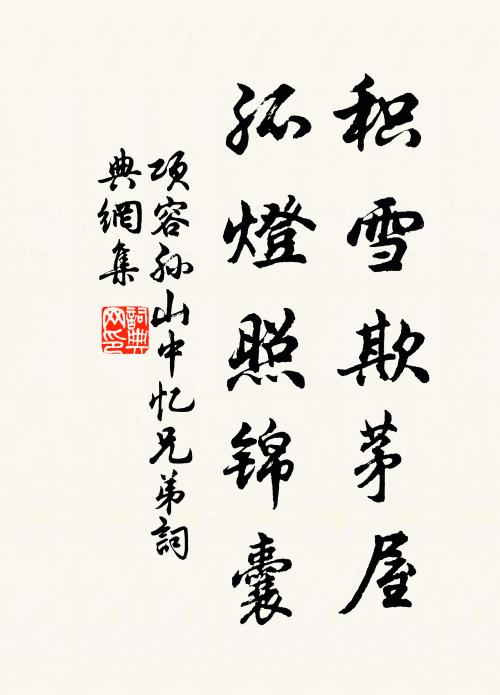 积雪欺茅屋
孤燈照锦囊
项容孙山中忆兄弟詞
典網集
詞典
网印